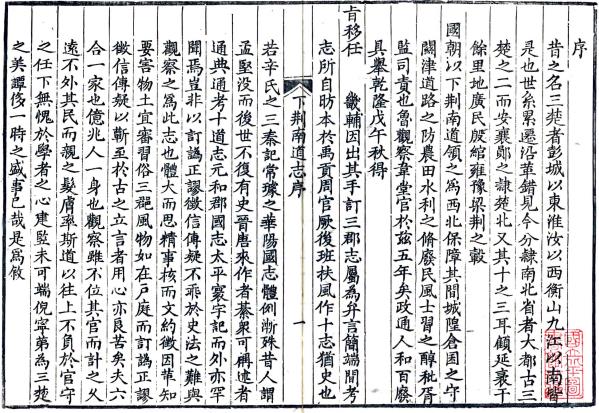 序
昔之名三楚者彭城以東淮汝以西衡山九江以南皆
是也世系累遷沿革錯見今分隸南北省者大都古三
楚之二而安襄鄖之隸楚北又其十之三耳顧延袤千
餘里地廣民殷綰雍豫梁荆之轂
國朝以下荆南道領之為西北保障其間城隍倉囷之守
關津道路之防農田水利之脩廢民風士習之醇秕胥
監司責也魯觀察韋堂官於兹五年矣政通人和百廢
具舉乾隆戊午秋得
旨移任　畿輔因出其手訂三郡志屬為弁言簡端閒考
志所自昉本於禹貢周官厥後班扶風作十志猶史也
下荆南道志序
一
若辛氏之三秦記常璩之華陽國志體例漸殊昔人謂
孟堅没而後世不復有史晉唐來作者綦衆可稱述者
通典通考十道志元和郡國志太平寰宇記而外亦罕
聞焉豈非以訂譌正謬徵信傳疑不乖於史法之難與
觀察之為此志也體大而思精事核而文約徵因革知
要害物土宜審習俗三郡風物如在户庭而訂譌正謬
徵信傳疑以蘄至於古之立言者用心亦良苦矣夫六
合一家也億兆人一身也觀察雖不位其官而計之久
遠不外其民而親之髮膚率斯道以往上不負於官守
之任下無愧於學者之心建豎未可端倪寧第為三楚
之美譚侈一時之盛事已哉是為敘